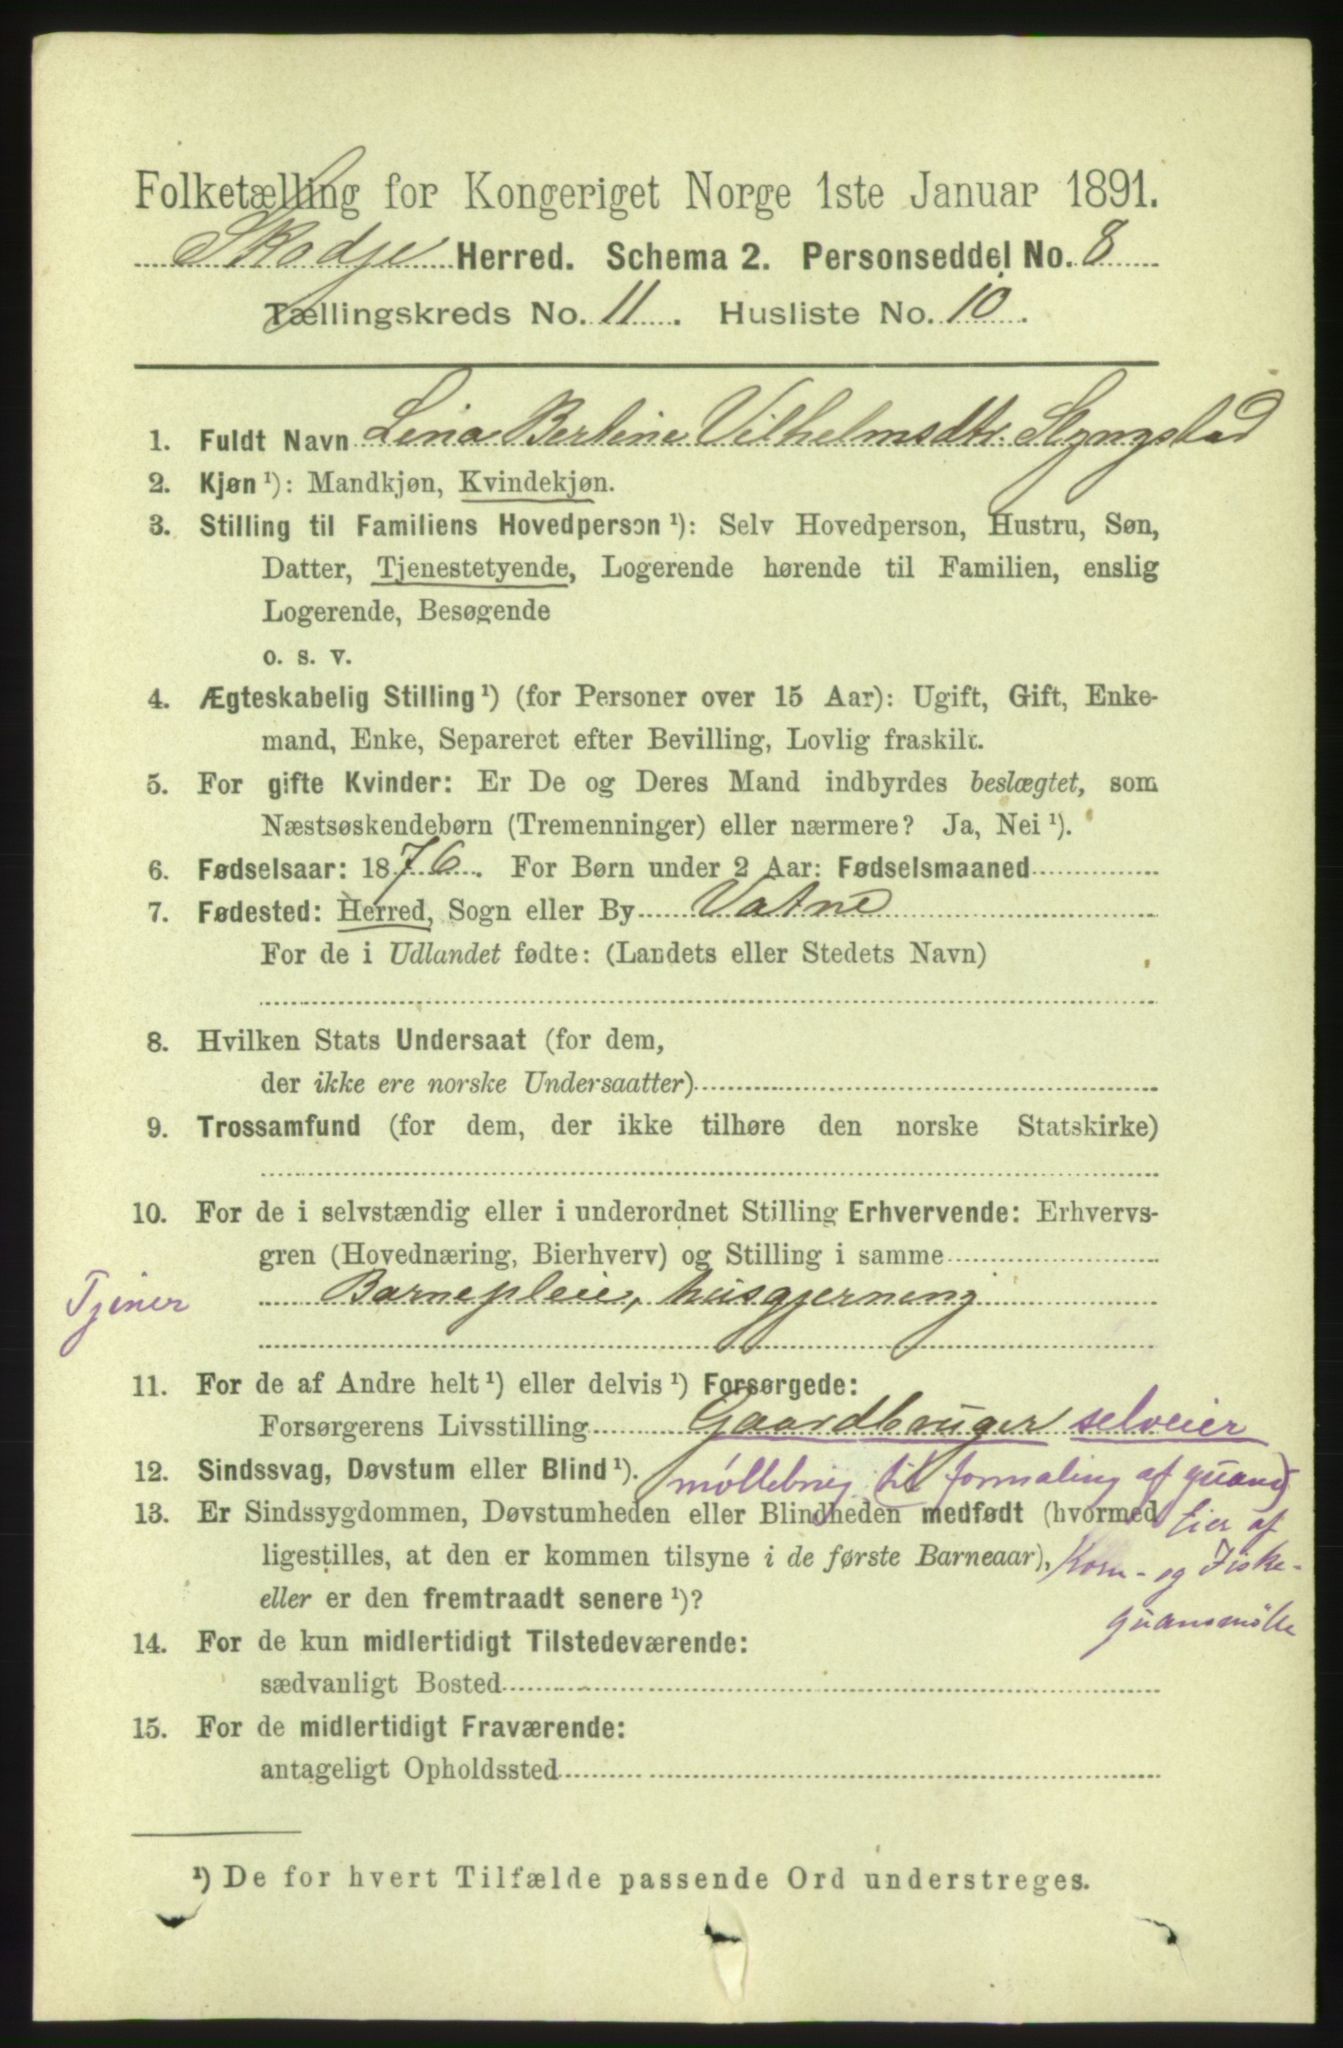 Folketælling for Kongeriget Norge 1ste Januar 1891.
Skodje Herred. Schema 2. Personseddel No. 8
Tællingskreds No. 11. Husliste No. 10.
1. Fuldt Navn Lina Bertine Vilhelmsdtr. Slyngstad
2. Kjøn ¹): Mandkjøn, Kvindekjøn.
3. Stilling til Familiens Hovedperson ¹): Selv Hovedperson, Hustru, Søn,
Datter, Tjenestetyende, Logerende hørende til Familien, enslig
Logerende, Besøgende
o. s. v.
4. Ægteskabelig Stilling ¹) (for Personer over 15 Aar): Ugift, Gift, Enke-
mand, Enke, Separeret efter Bevilling, Lovlig fraskilt.
5. For gifte Kvinder: Er De og Deres Mand indbyrdes beslægtet, som
Næstsøskendebørn (Tremenninger) eller nærmere? Ja, Nei ¹).
6. Fødselsaar: 1876. For Børn under 2 Aar: Fødselsmaaned
7. Fødested: Herred, Sogn eller By Vatne
For de i Udlandet fødte: (Landets eller Stedets Navn)
8. Hvilken Stats Undersaat (for dem,
der ikke ere norske Undersaatter)
9. Trossamfund (for dem, der ikke tilhøre den norske Statskirke)
10. For de i selvstændig eller i underordnet Stilling Erhvervende: Erhvervs-
gren (Hovednæring, Bierhverv) og Stilling i samme
Tjener Barnepleie, husgjerning
11. For de af Andre helt ¹) eller delvis ¹) Forsørgede:
Forsørgerens Livsstilling Gaardbruger selveier
12. Sindssvag, Døvstum eller Blind ¹). møllebrug til formaling af guano
13. Er Sindssygdommen, Døvstumheden eller Blindheden medfødt (hvormed Eier af
ligestilles, at den er kommen tilsyne i de første Barneaar), Korn- og Fiske-
eller er den fremtraadt senere ¹)? guanomølle
14. For de kun midlertidigt Tilstedeværende:
sædvanligt Bosted
15. For de midlertidigt Fraværende:
antageligt Opholdssted
¹) De for hvert Tilfælde passende Ord understreges.